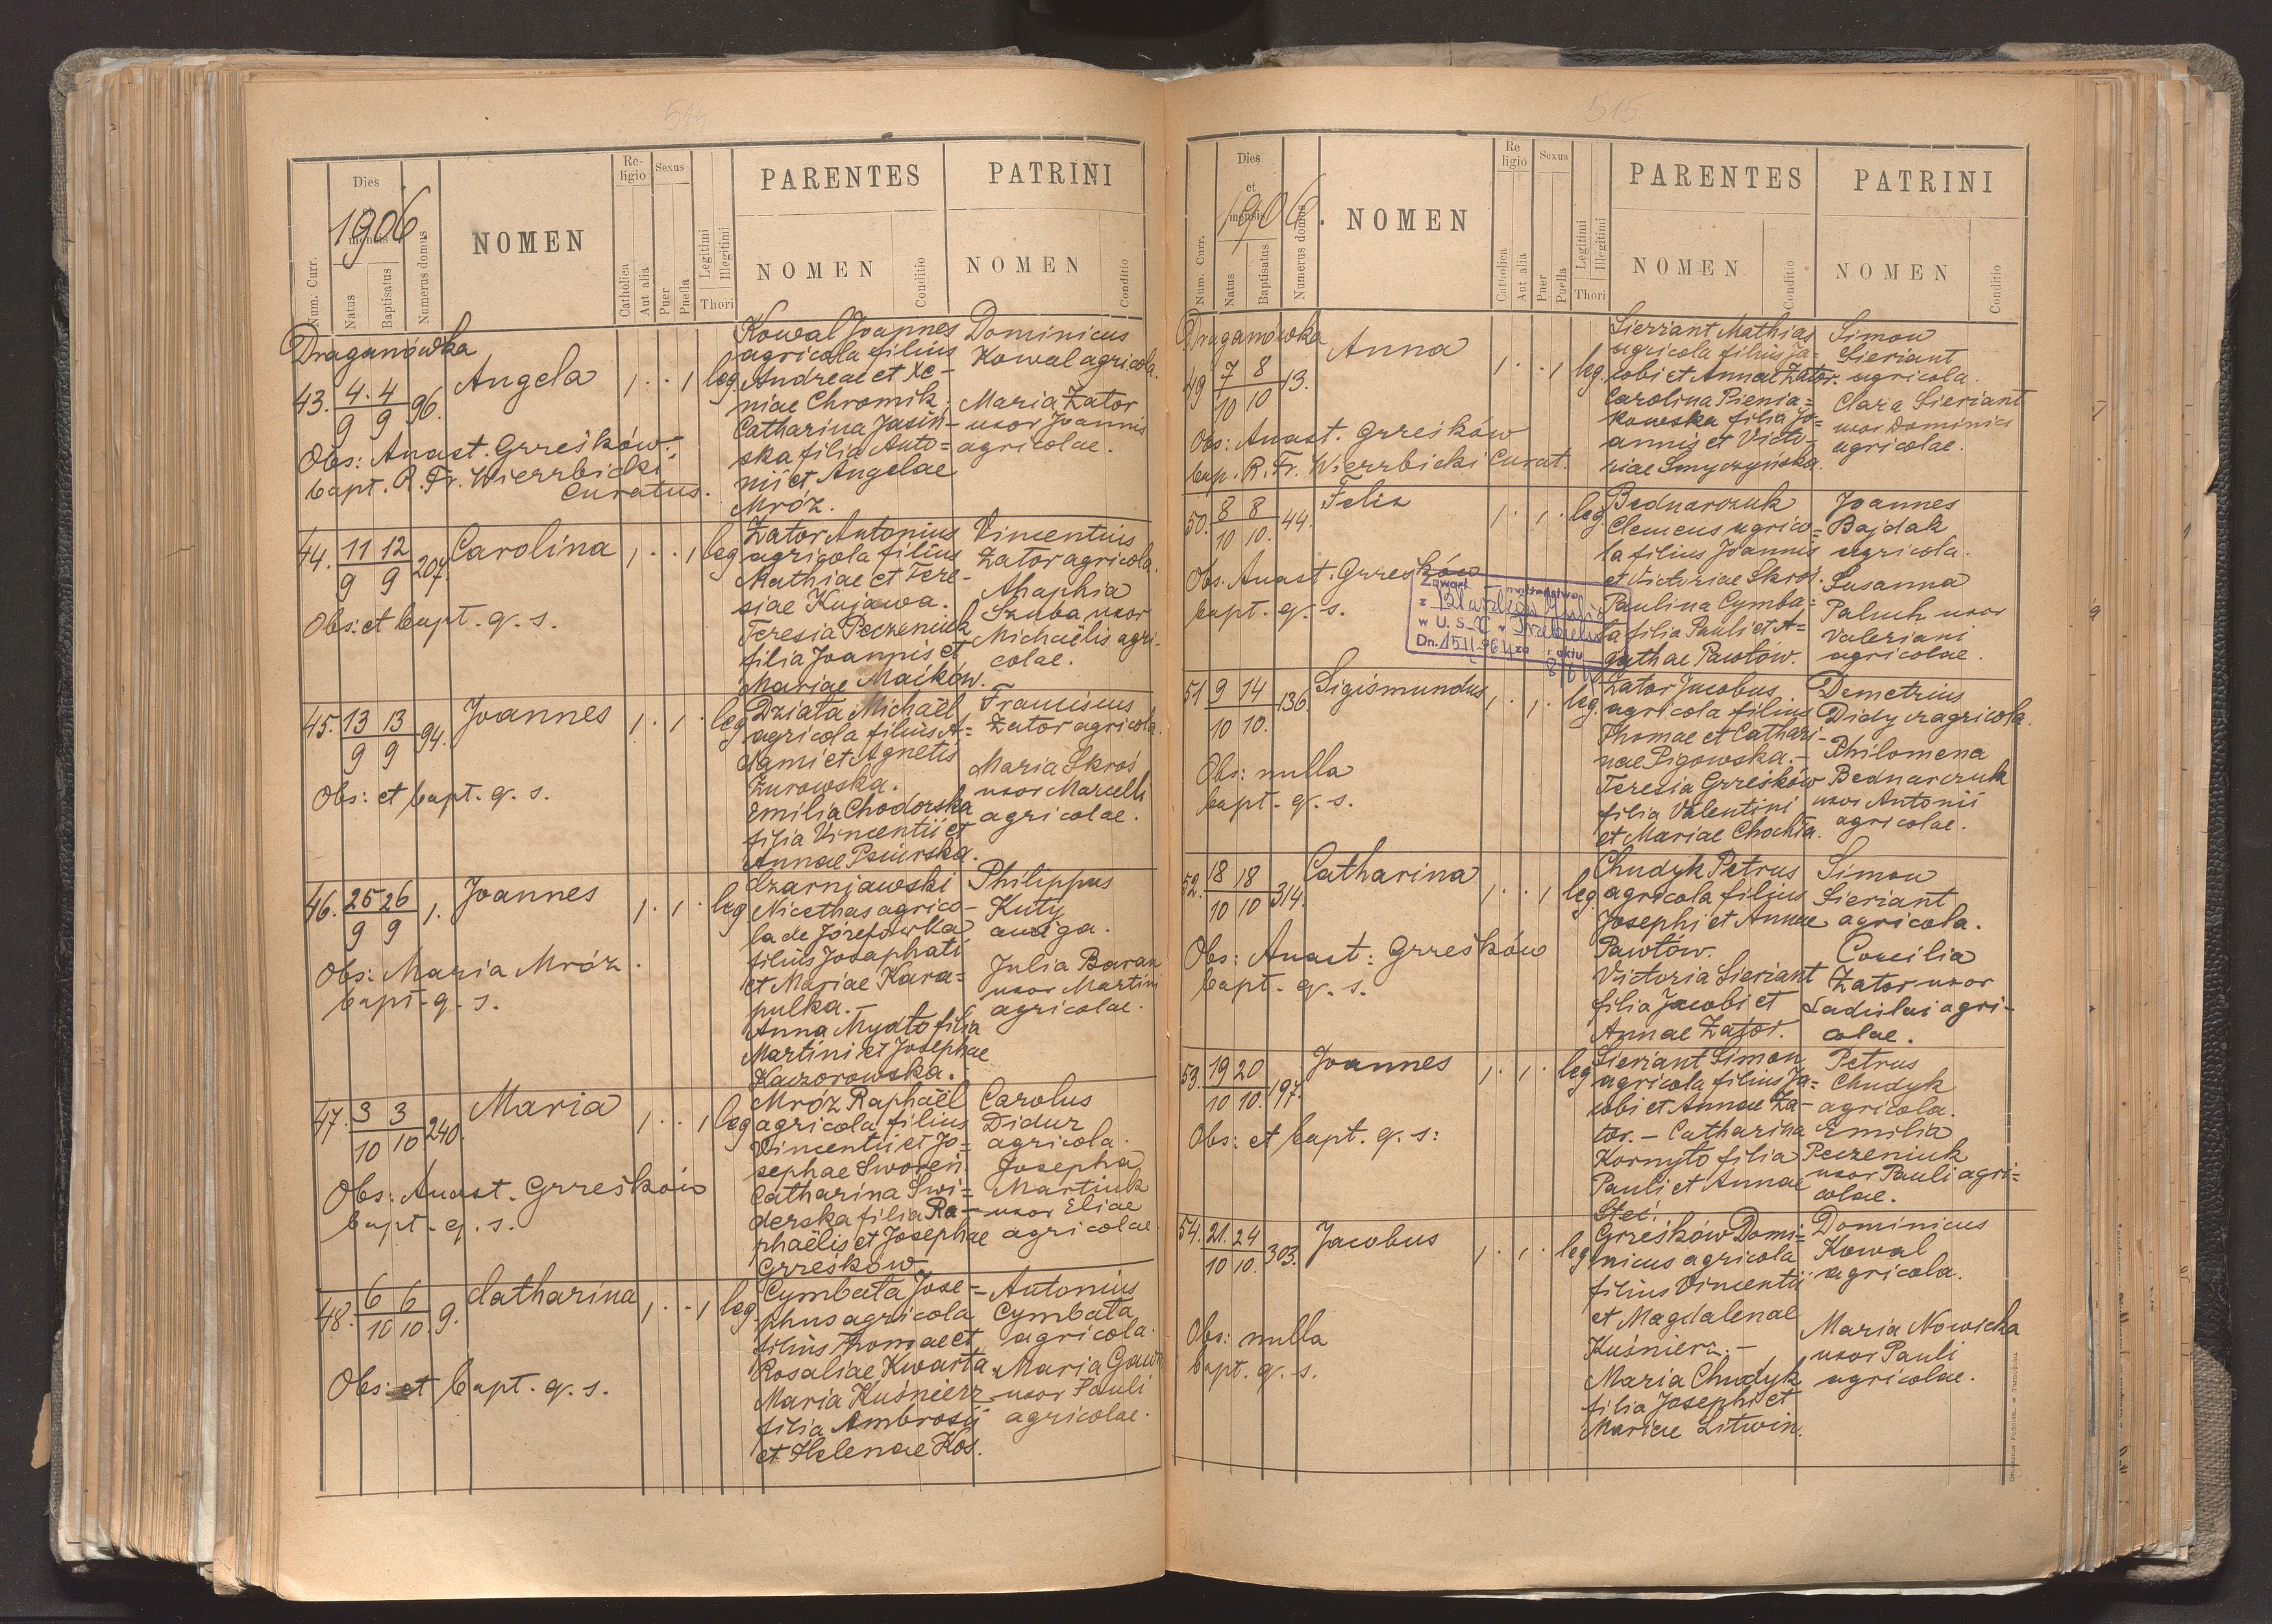 514
Dies et mensis
1906.
Num. Curr.
Natus
Baptisatus
Numerus domus
NOMEN
Religio
Catholica
Aut alia
Sexus
Puer
Puella
Legitimi
Illegitimi
Thori
PARENTES
NOMEN
Conditio
PATRINI
NOMEN
Conditio
Draganówka
43. 4. 4 96. Angela 1 . . 1 leg
9 9
Obs: Anast. Grześków.
bapt. R. Fr. Wierzbicki
Curatus.
Kowal Joannes
agricola filius
Andreae et Xe-
niae Chromik.
Catharina Jasiń-
ska filia Anto=
nii et Angelae
Mróz.
Dominicus
Kowal agricola.
Maria Zator
uxor Joannis
agricolae.
44. 11 12 207. Carolina 1 . . 1 leg
9 9
Obs: et bapt. q. s.
Zator Antonius
agricola filius
Mathiae et Tere-
siae Kujawa.
Teresia Peczeniuk
filia Joannis et
Mariae Maików.
Vincentius
Zator agricola.
Ahaphia
Szuba uxor
Michaëlis agri-
colae.
45. 13 13 94. Joannes 1 . 1 . leg
9 9
Obs: et bapt. q. s.
Działa Michaël
agricola filius A=
dami et Agnetis
Żurowska.
Emilia Chodorska
filia Vincentii et
Annae Psiurska.
Franciscus
Zator agricola.
Maria Skroś
uxor Marcelli
agricolae.
46. 25 26 1. Joannes 1 . 1 . leg
9 9
Obs: Maria Mróz.
bapt. q. s.
Czarniawski
Nicethas agrico-
la de Józefówka
filius Josaphati
et Mariae Kara=
pulka.-
Anna Mydło filia
Martini et Josephae
Kaczorowska.
Philippus
Kuty
auriga.
Julia Baran
uxor Martini
agricolae.
47. 3 3 240. Maria 1 . . 1 leg
10 10
Obs: Anast. Grześków
bapt. q. s.
Mróz Raphaël
agricola filius
Vincentii et Jo-
sephae Sworen.
Catharina Swi=
derska filia Ra-
phaëlis et Josephae
Grześków
Carolus
Didur
agricola.
Josepha
Martiuk
uxor Eliae
agricolae
48. 6 6 9. Catharina 1 . . 1 leg.
10 10
Obs: et bapt. q. s.
Cymbała Jose=
phus agricola
filius Thomae et
Rosaliae Kwarta.
Maria Kuśnierz
filia Ambrosii
et Helenae Kos.
Antonius
Cymbała
agricola.
Maria
uxor Pauli
agricolae.
515
Dies et mensis
1906.
Num. Curr.
Natus
Baptisatus
Numerus domus
NOMEN
Religio
Catholica
Aut alia
Sexus
Puer
Puella
Legitimi
Illegitimi
Thori
PARENTES
NOMEN
Conditio
PATRINI
NOMEN
Conditio
Draganówka
49 7 8 13. Anna 1 . . 1 leg.
10 10
Obs: Anast. Grześków
bap. R. Fr. Wierzbicki Curat.
Sierżant Mathias
agricola filius Ja=
cobi et Annae Zator.
Carolina Pienia=
kowska filia Jo=
annis et Victo-
riae Smyczyńska.
Simon
Sierżant
agricola.
Clara Sierżant
uxor Dominici
agricolae.
50. 8 8 44. Felix 1 . 1 . leg
10 10.
Obs. Anast. Grześków
bapt. q. s.
Zawarł małżeństwo
w U. S. C.
Bednarczuk
Clemens agrico=
la filius Joannis
et Victoriae Skroś.
Paulina Cymba=
ła filia Pauli et A=
gathae Pawłow.
Joannes
Bajdak
agricola.
Susanna
Paluch uxor
Valeriani
agricolae.
51 9 14 136. Sigismundus 1 . 1 . leg.
10 10.
Obs: nulla
bapt. q. s.
Zator Jacobus
agricola filius
Thomae et Cathari-
nae Pigowska.-
Teresia Grześków
filia Valentini
et Mariae Chochła.
Demetrius
Didyk agricola.
Philomena
Bednarczuk
uxor Antonii
agricolae.
52. 18 18 314. Catharina 1 . . 1 leg.
10 10
Obs: Anast: Grześków
bapt. q. s.
Chudyk Petrus
agricola filius
Josephi et Annae
Pawłów.
Victoria Sierżant
filia Jacobi et
Annae Zator.
Simon
Sierżant
agricola.
Coecilia
Zator uxor
Ladislai agri-
colae.
53. 19 20 197. Joannes 1 . 1 . leg
10 10.
Obs: et bapt. q. s:
Sierżant Simon
agricola filius Ja=
cobi et Annae Za-
tor. - Catharina
Kornyło filia
Pauli et Annae
Steć.
Petrus
Chudyk
agricola.
Emilia
Peczeniuk
uxor Pauli agri=
colae.
54. 21. 24 303. Jacobus 1 . 1 . leg
10 10.
Obs: nulla
bapt. q. s.
Grześków Domi=
nicus agricola
filius Vincentii
et Magdalenae
Kuśnierz.-
Maria Chudyk
filia Josephi et
Mariae Litwin.
Dominicus
Kowal
agricola.
Maria Nowicka
uxor Pauli
agricolae.